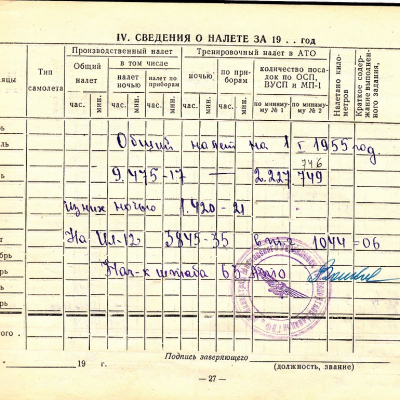 IV. СВЕДЕНИЯ О НАЛЕТЕ ЗА 19 . . год
Тип самолета
Производственный налет
Тренировочный налет в АТО
Общий налет
в том числе
налет ночью
налет по приборам
ночью
по приборам
количество посадок по ОСП, ВУСП и МП-1
по минимуму № 1
по минимуму № 2
Налетано километров
Краткое содержание выполненного задания,
час. мин. час. мин. час. мин. час. мин. час. мин.
Общий налет на 1 I 1955 год.
746
9.475-17 — 2.227 749
из них ночью 1.420 - 21
На Ил-12 3845-35 в т.ч 1044=06
Нач-к штаба 63 АТО
19 г.
Подпись заверяющего
(должность, звание)
— 27 —